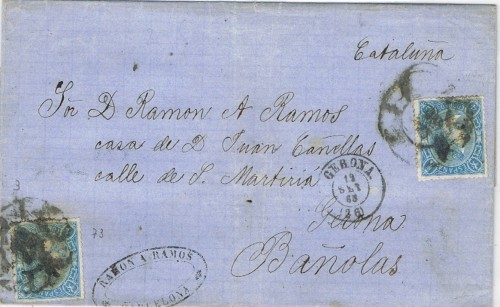 Cataluña
Sor D Ramon A Ramos
casa de D Juan Cañellas
calle de S. Martiriá
Gerona
Bañolas
GERONA
12
SET
65
(26)
3
73
RAMON A. RAMOS
BARCELONA